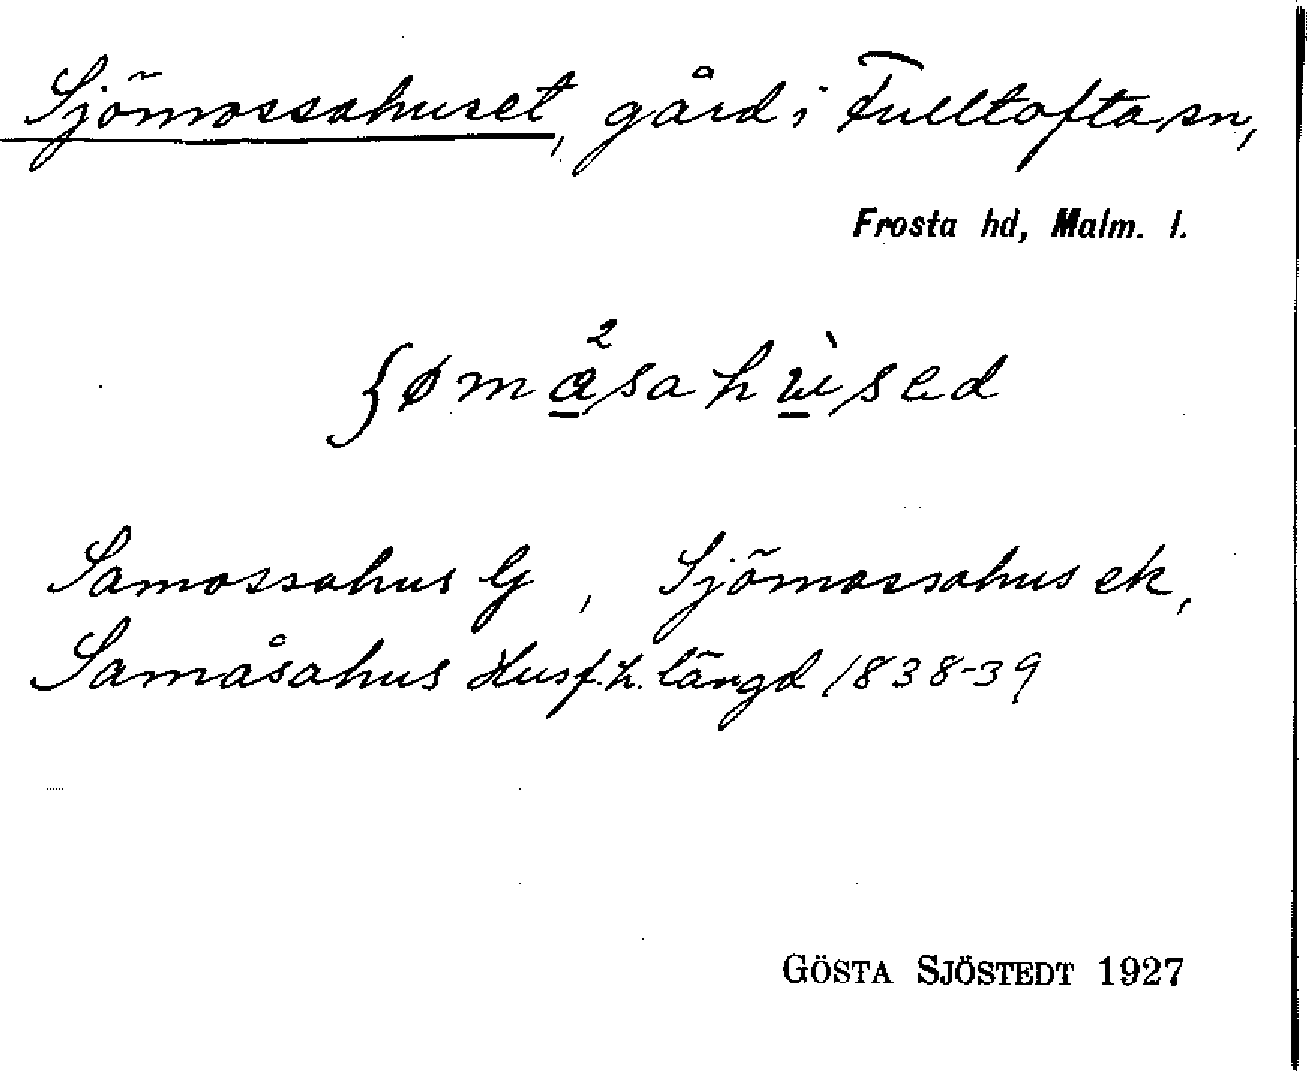 Sjömossahuset, gård i Fulltofta sn,
Frosta hd, Malm. l.
Samossahus G, Sjömossahus ek,
Samåsahus Husf.h. längd 1838-39
GÖSTA SJÖSTEDT 1927